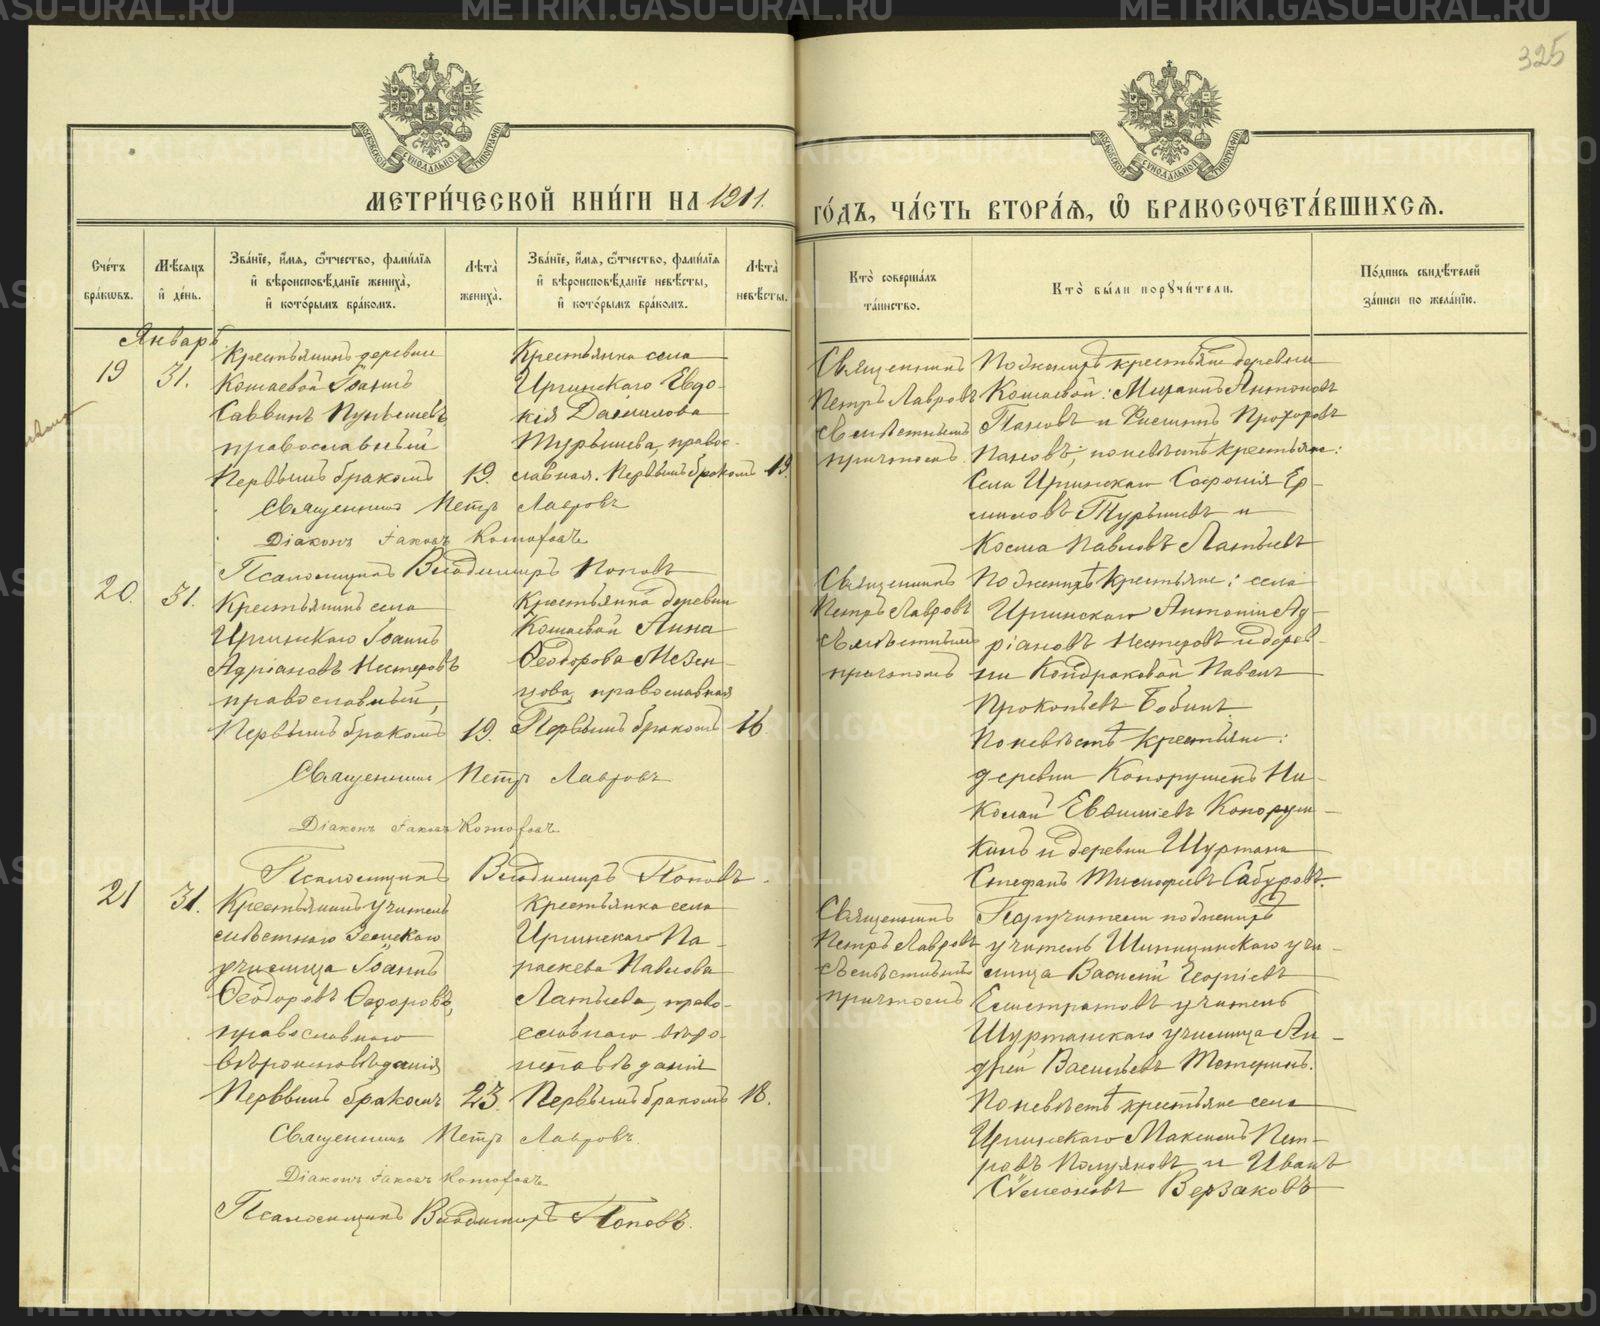 325
МЕТРИ́ЧЕСКОЙ КНИ́ГИ НА 1911.
ГО́ДЪ, ЧА́СТЬ ВТОРА́Я, Ѡ БРАКОСОЧЕТА́ВШИХСЯ.
Сче́тъ бра́кωвъ.
Мѣ́сяцъ и҆ де́нь.
Зва́нїе, и҆́мя, ѻ҆́тчество, фами́лїя
и҆ вѣроисповѣ́данїе жениха̀,
и҆ кото́рымъ бра́комъ.
Лѣта̀ жениха̀.
Зва́нїе, и҆́мя, ѻ҆́тчество, фами́лїя
и҆ вѣроисповѣ́данїе невѣ́сты,
и҆ кото́рымъ бра́комъ.
Лѣта̀ невѣ́сты.
Кто̀ соверша́лъ та́инство.
Кто̀ бы́ли порꙋчи́тели.
По́дпись свидѣ́телей за́писи по жела́нїю.
Январь
19
31.
Крестьянинъ деревни
Кошаевой Іоаннъ
Саввинъ
православный
Первымъ бракомъ
19.
Крестьянка села
Иргинскаго Евдо-
кія Даніилова
Турышева, правос-
лавная. Первымъ бракомъ
19.
Священникъ
Петръ Лавровъ
съ мѣстнымъ
причтомъ
По женихѣ крестьяне деревни
Кошаевой: Михаилъ Антоновъ
Пановъ и Филиппъ Прохоровъ
Пановъ; по невѣстѣ крестьяне:
Села Иргинскаго Софонія Ер-
миловъ Турышевъ и
Косма Павловъ Латыевъ
Священникъ Петръ Лавровъ
Діаконъ Іаковъ
Псаломщикъ Владимиръ Поповъ
20.
31.
Крестьянинъ села
Иргинскаго Іоаннъ
Адріановъ Нестеровъ
православный,
Первымъ бракомъ
19.
Крестьянка деревни
Кошаевой Анна
Ѳеодорова Мезен-
цова, православная
Первымъ бракомъ
16.
Священникъ
Петръ Лавровъ
съ мѣстнымъ
причтомъ
По женихѣ крестьяне: села
Иргинскаго Антоній Ад-
ріановъ Нестеровъ и дерев-
ни Кондраковой Павелъ
Прокопьевъ Бобинъ.
По невѣстѣ крестьяне:
деревни Копорушекъ Ни-
колай Евѳиміевъ Копоруш-
кинъ и деревни Шуртана
Стефанъ Тимофіевъ Сабуровъ.
Священникъ Петръ Лавровъ
Діаконъ Іаковъ
Псаломщикъ Владимиръ Поповъ.
21
31.
Крестьянинъ учитель
мѣстнаго Земскаго
училища Іоаннъ
Ѳеодоровъ Ѳедоровъ,
православнаго
вѣроисповѣданія
Первымъ бракомъ
23.
Крестьянка села
Иргинскаго Па-
раскева Павлова
Латыева, право-
славнаго вѣро-
исповѣданія
Первымъ бракомъ
18.
Священникъ
Петръ Лавровъ
съ мѣстнымъ
причтомъ
Поручители по женихѣ
учитель Шипицинскаго учи-
лища Василій Георгіевъ
Елистратовъ учитель
Шуртанскаго училища Ан-
дрей Васильевъ Тетеринъ.
По невѣстѣ крестьяне села
Иргинскаго Максимъ Пет-
ровъ Полуяновъ и Иванъ
Семеновъ Верзаковъ
Священникъ Петръ Лавровъ.
Діаконъ Іаковъ
Псаломщикъ Владимиръ Поповъ.
METRIKI.GASO-URAL.RU